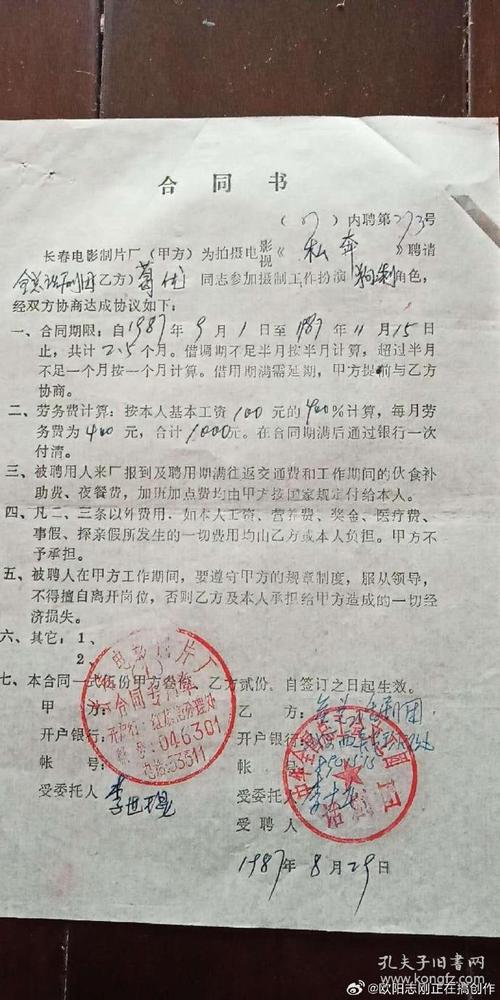 合同书
(87)内聘第273号
长春电影制片厂(甲方)为拍摄电影视《私奔》聘请
全总话剧团乙方)葛优同志参加摄制工作扮演角色,
经双方协商达成协议如下:
一、合同期限:自1987年9月1日至1987年11月15日
止,共计2.5个月。借调期不足半月按半月计算,超过半月
不足一个月按一个月计算。借用期满需延期,甲方提前与乙方
协商。
二、劳务费计算:按本人基本工资100元的400%计算,每月劳
务费为400元,合计1000元。在合同期满后通过银行一次
付清。
三、被聘用人来厂报到及聘用期满往返交通费和工作期间的伙食补
助费、夜餐费,加班加点费均由甲方按国家规定付给本人。
四、凡二、三条以外费用,如本人工资、营养费、奖金、医疗费、
事假、探亲假所发生的一切费用均由乙方或本人负担。甲方不
予承担。
五、被聘人在甲方工作期间,要遵守甲方的规章制度,服从领导,
不得擅自离开岗位,否则乙方及本人承担给甲方造成的一切经
济损失。
六、其它:1、
2、
七、本合同一式伍份甲方叁份,乙方贰份,自签订之日起生效。
甲方:
乙方:全总话剧团
开户银行:
开户银行:
帐号:
帐号:
受委托人:
受委托人
受聘人
1987年8月29日
合同专用章
046301
电话:53311
话剧团
孔夫子旧书网
kongfz.com
@欧阳志刚正在搞创作